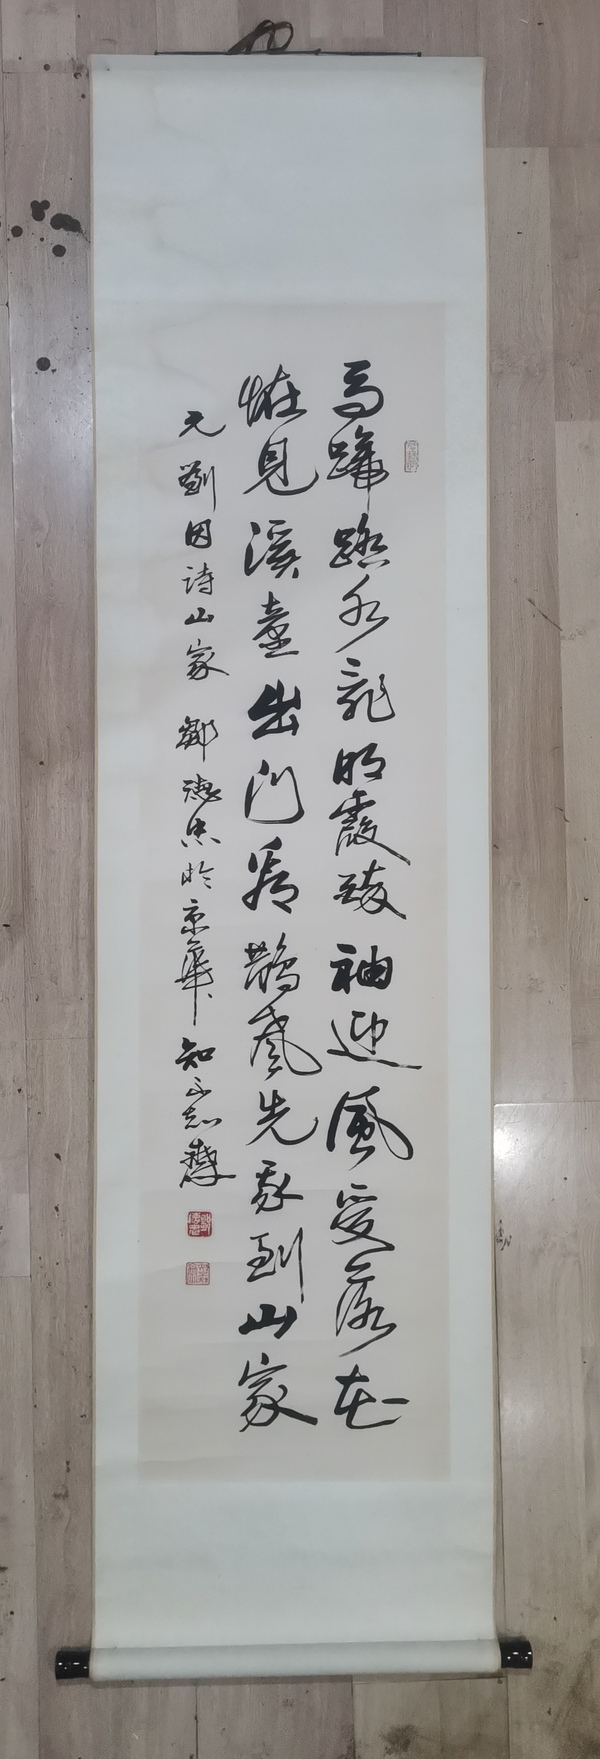 馬蹄踏水亂明霞醉袖迎風受落花
怪見溪童出門看鵲聲先我到山家
元劉因詩山家 鄭德忠於京華知